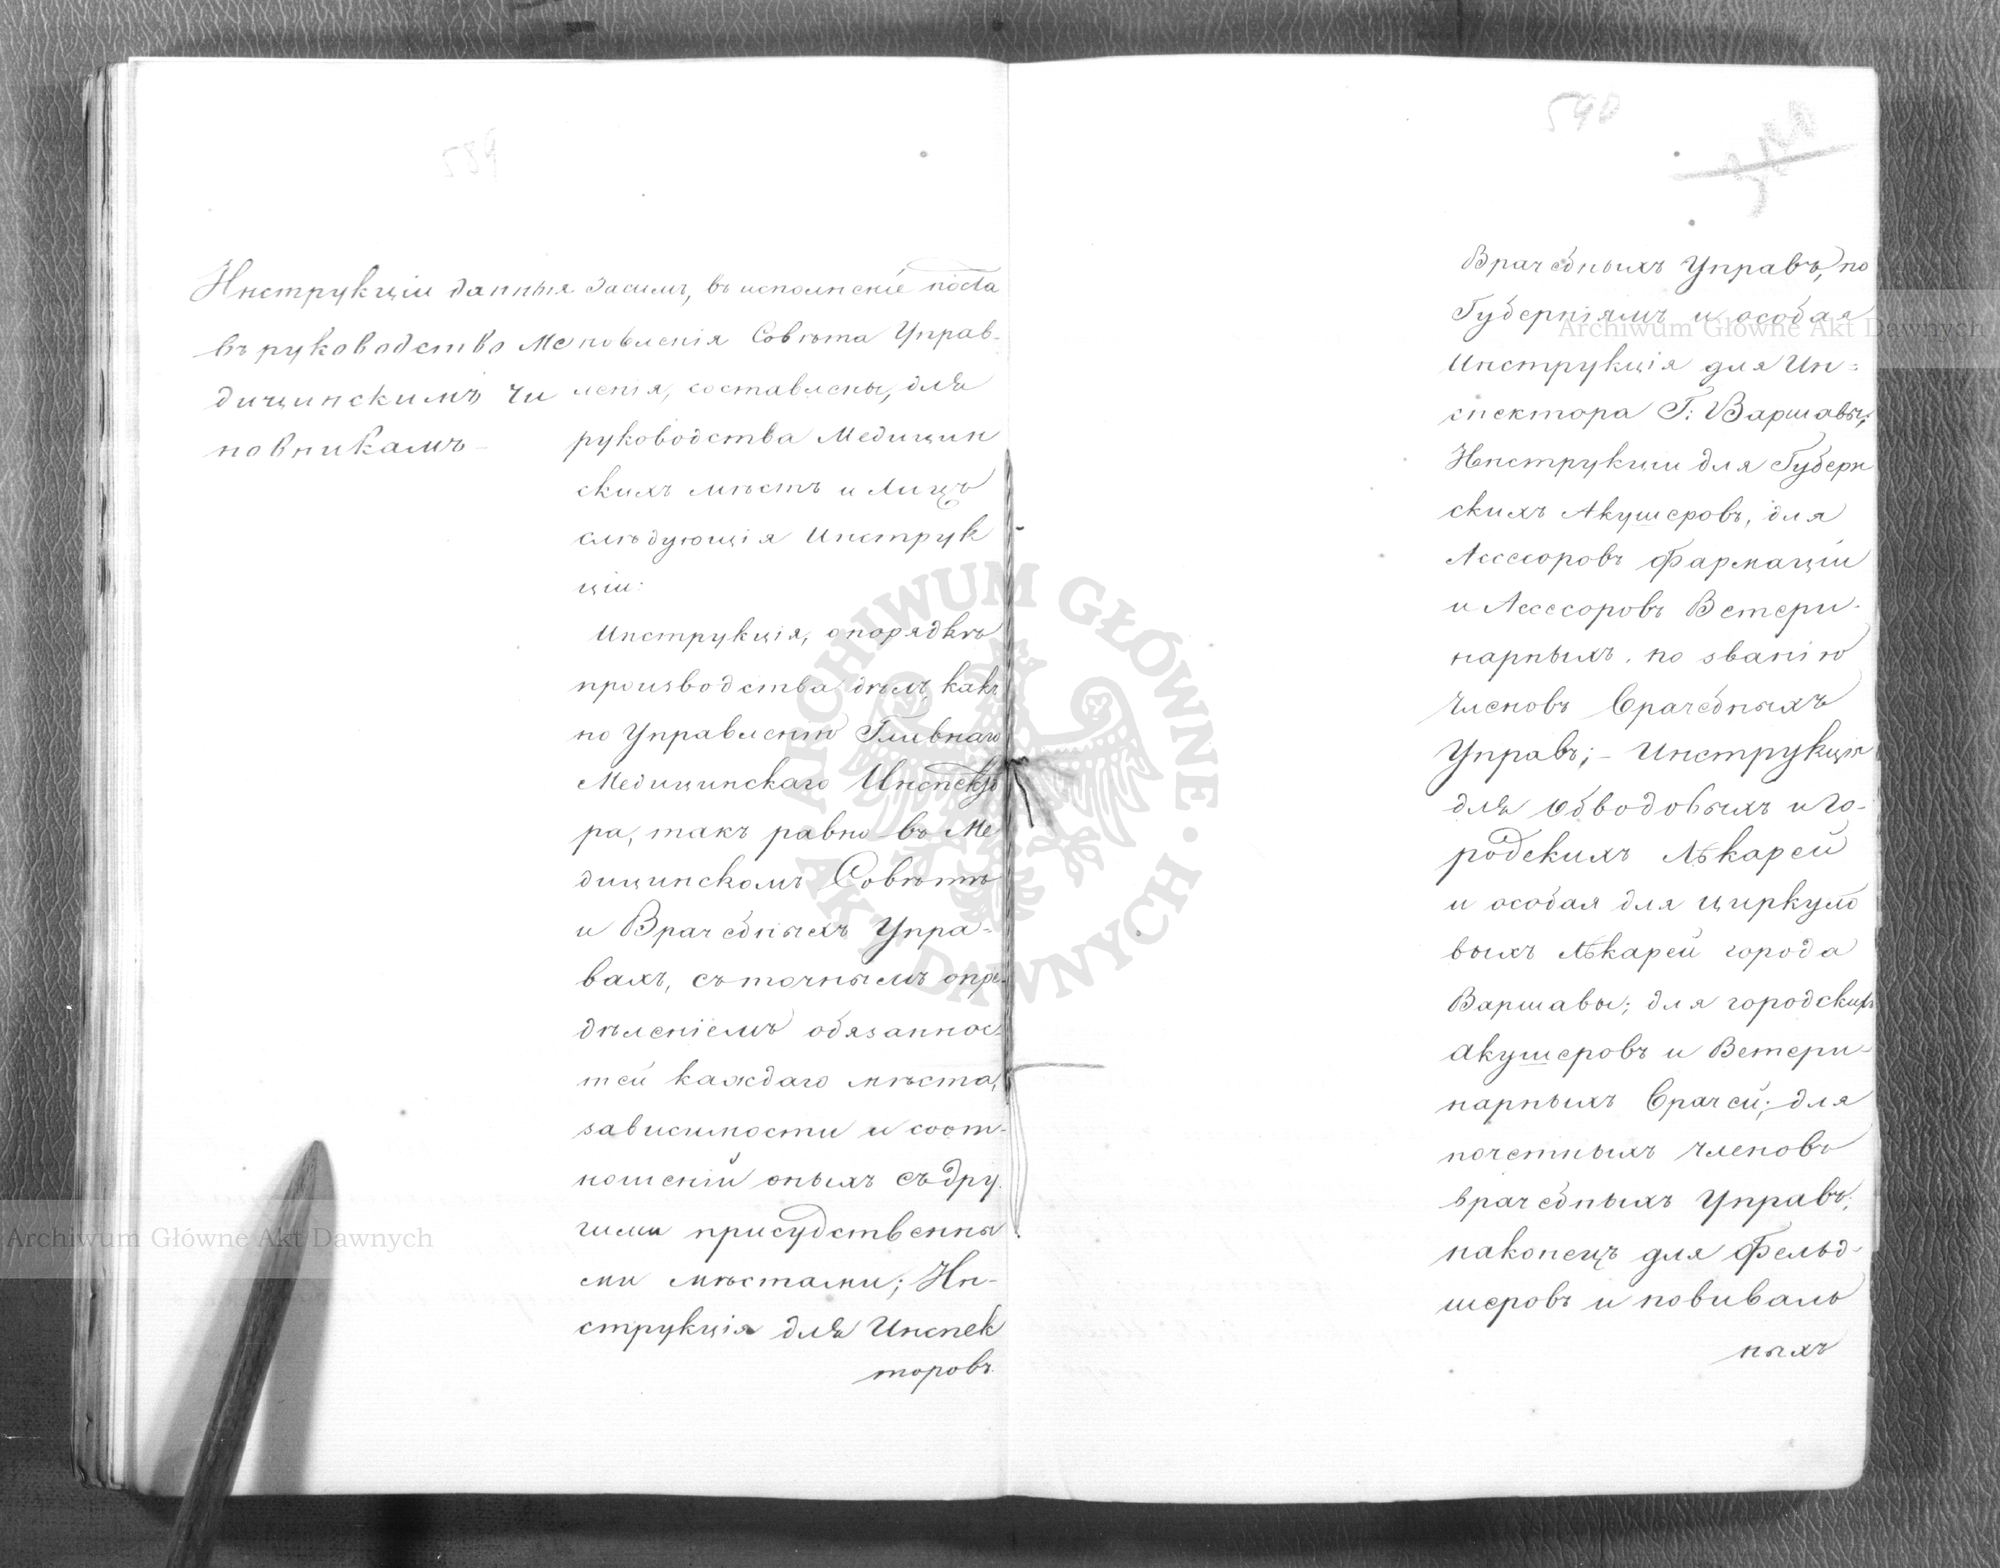 590
Инструкціи данныя
въ руководство Ме
дицинскимъ Чи
новникамъ
Засимъ, въ исполненіе поста
новленія Совѣта Управ-
ленія, составлены, для
руководства Медицин
скихъ мѣстъ и лицъ
слѣдующія Инструк
ціи:
Инструкція, о порядкѣ
производства дѣлъ, какъ
по Управленію Главнаго
Медицинскаго Инспекто
ра, такъ равно въ Ме
дицинскомъ Совѣтѣ
и Врачебныхъ Упра-
вахъ, съ точнымъ опре-
дѣленіемъ обязаннос-
тей каждаго мѣста,
зависимости и соот-
ношеній оныхъ съ дру-
гими присудственны
ми мѣстами; Ин-
струкція для Инспек
торовъ
Врачебныхъ Управъ, по
Губерніямъ и особая
Инструкція для Ин-
спектора Г: Варшавы;
Инструкции для Губерн
скихъ Акушеровъ, для
Асессоровъ Фармаціи
и Асессоровъ Ветери-
нарныхъ, по званію
Членовъ Врачебныхъ
Управъ; - Инструкція
для Обводовыхъ и Го-
родскихъ Лѣкарей
и особая для циркуло
выхъ Лѣкарей города
Варшавы; для городскихъ
Акушеровъ и Ветери-
нарныхъ Врачей; для
почетныхъ членовъ
врачебныхъ Управъ,
наконецъ для Фельд-
шеровъ и повиваль
ныхъ
ARCHIWUM GŁÓWNE AKT DAWNYCH
Archiwum Główne Akt Dawnych
Archiwum Główne Akt Dawnych